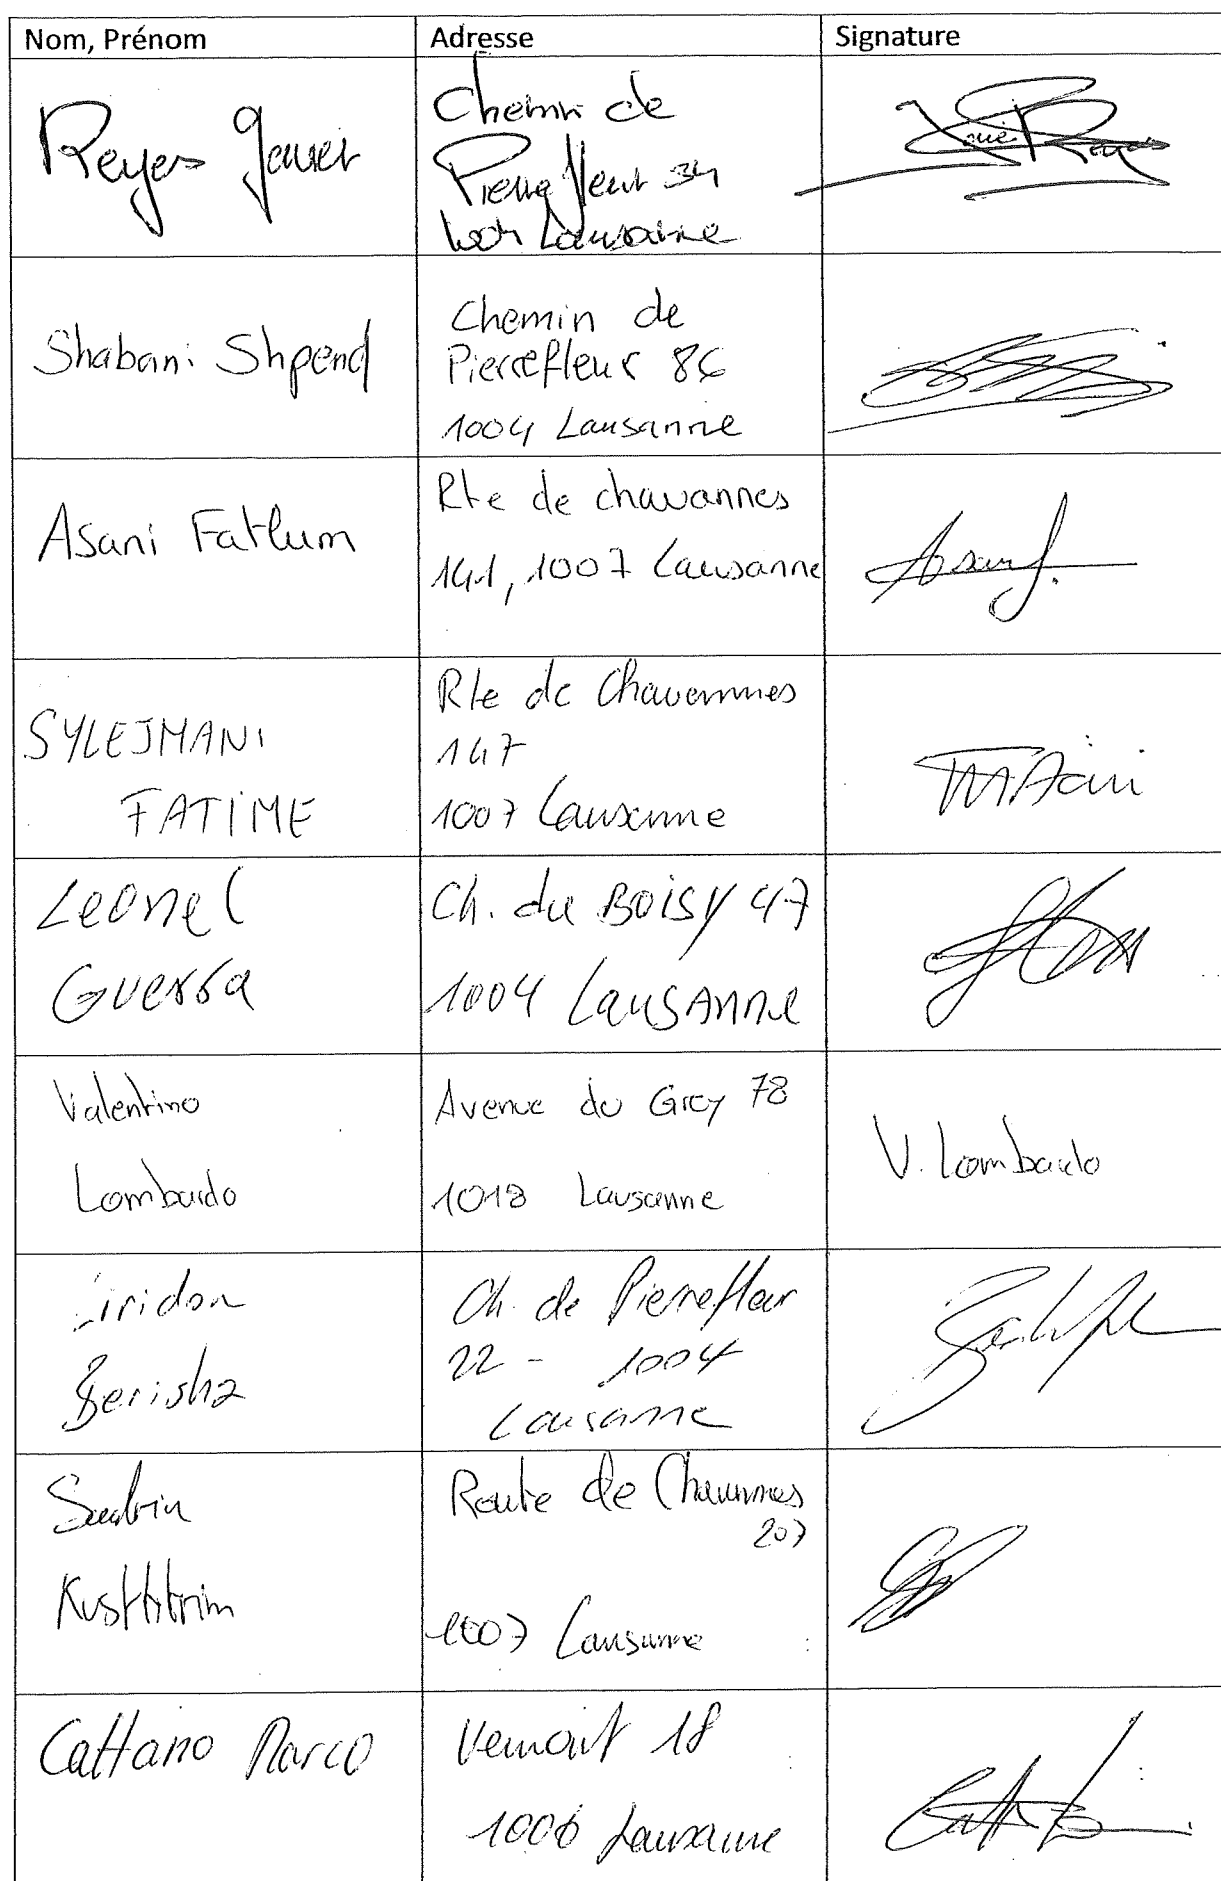 Nom, Prénom
Adresse
Signature
Reyes Javier
Chemin de
Pierrefleur 34
1004 Lausanne
Shabani Shpend
Chemin de
Pierrefleur 86
1004 Lausanne
Asani Fatlum
Rte de chavannes
141, 1007 Lausanne
SYLEJMANI
FATIME
Rte de Chavannes
147
1007 Lausanne
Leonel
Guerra
Ch. du BOISY 47
1004 LAUSANNE
Valentino
Lombardo
Avenue du Grey 78
1018 Lausanne
V. Lombardo
Liridon
Berisha
Ch. de Pierrefleur
22 - 1004
Lausanne
Route de Chavannes
207
1007 Lausanne
Cattano Marco
18
1006 Lausanne